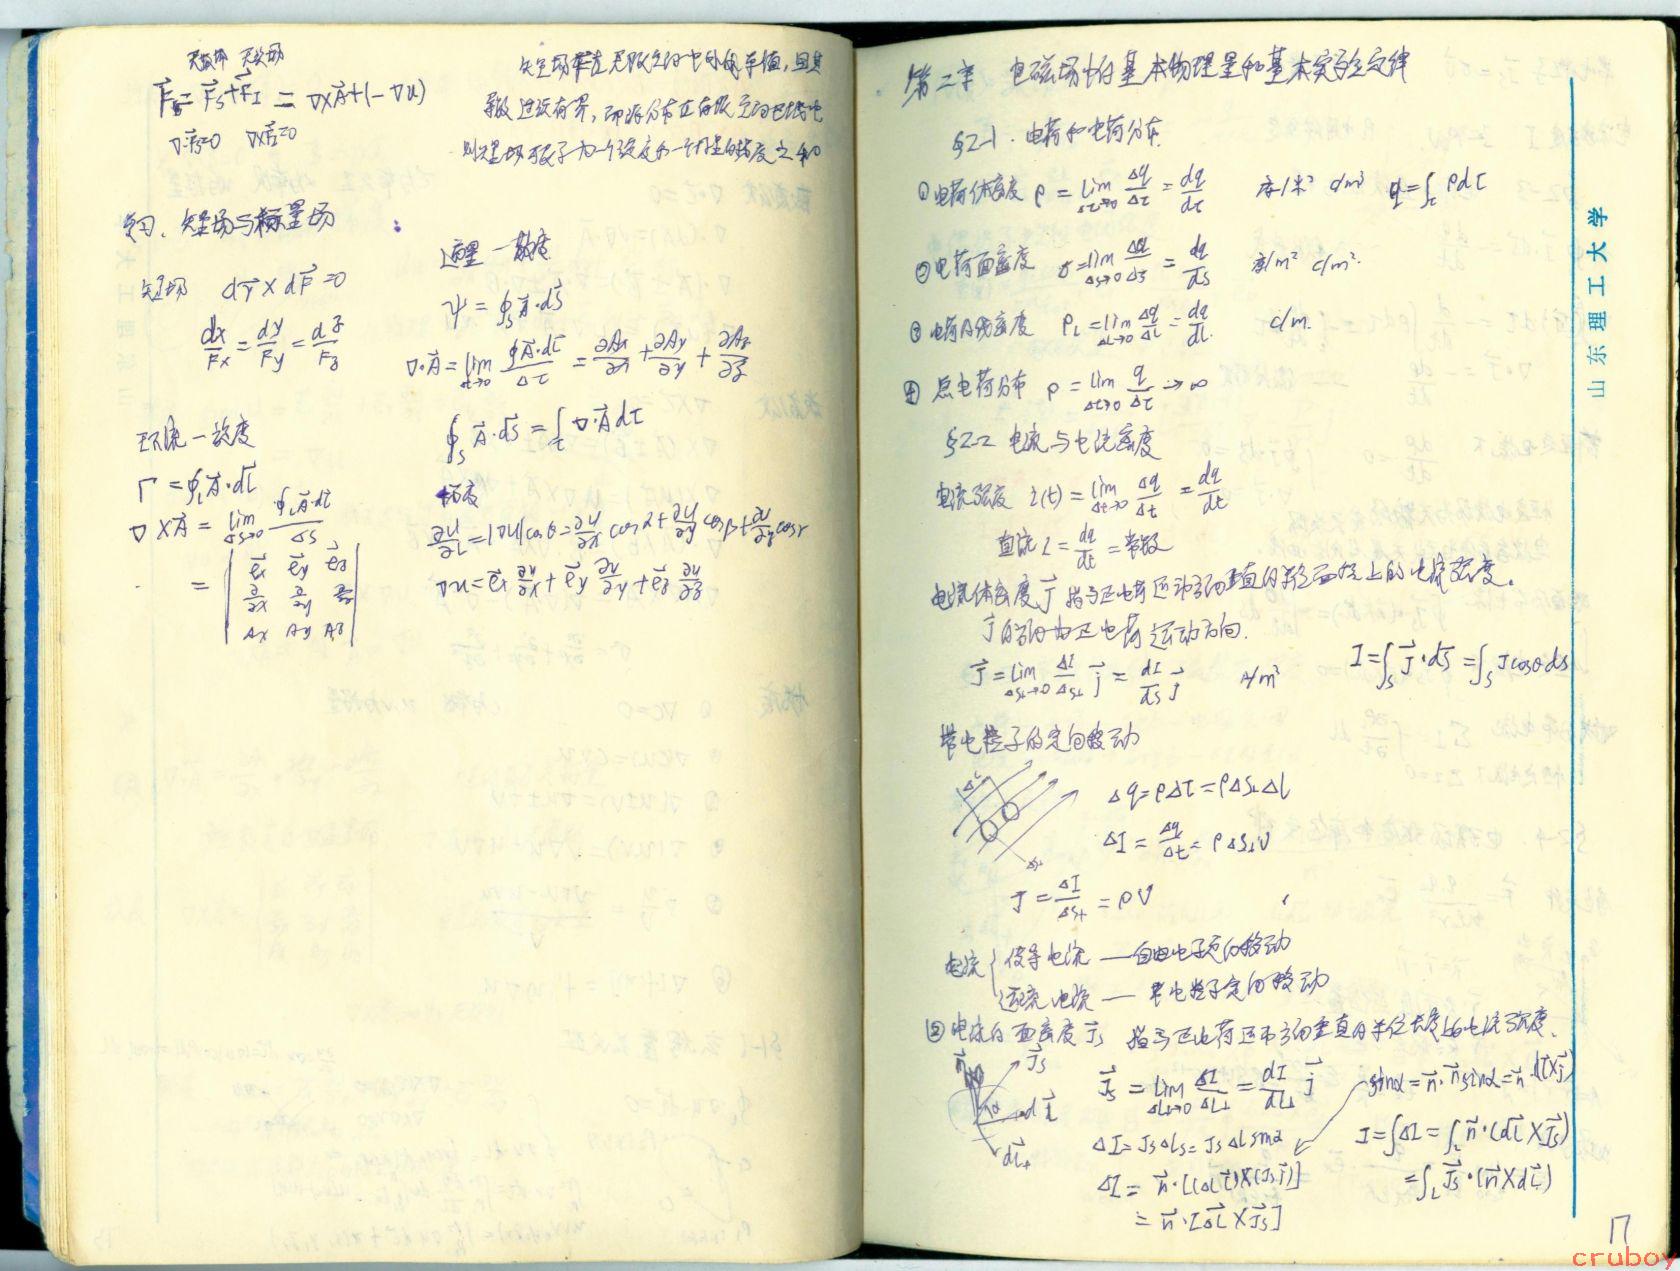 无散部 无旋场
F⃗ = F⃗s + F⃗I = ∇×A⃗ + (-∇u)
∇·F⃗s=0 ∇×F⃗I=0
矢量场在无限空间中处处单值,且其
导数连续有界,而源分布在有限空间区域中
则矢量场 一个旋度和一个标量的梯度之和
复习、矢量场与标量场
矢量场 dr⃗ × dF⃗ = 0
dx/Fx = dy/Fy = dz/Fz
环流—旋度
Γ = ∮L A⃗·dl⃗
∇×A⃗ = lim Δs→0 ∮L A⃗·dl⃗ / ΔS
= | e⃗x e⃗y e⃗z |
| ∂/∂x ∂/∂y ∂/∂z |
| Ax Ay Az |
通量—散度
ψ = ∮s A⃗·dS⃗
∇·A⃗ = lim Δτ→0 ∮A⃗·ds⃗ / Δτ = ∂Ax/∂x + ∂Ay/∂y + ∂Az/∂z
∮s A⃗·dS⃗ = ∫τ ∇·A⃗ dτ
梯度
∂u/∂l = |∇u|cosθ = ∂u/∂x cosα + ∂u/∂y cosβ + ∂u/∂z cosγ
∇u = e⃗x ∂u/∂x + e⃗y ∂u/∂y + e⃗z ∂u/∂z
第二章 电磁场中的基本物理量和基本实验定律
§2-1. 电荷和电荷分布
①电荷体密度 ρ = lim Δτ→0 Δq/Δτ = dq/dτ 库/米³ c/m³ q = ∫τ ρdτ
②电荷面密度 σ = lim Δs→0 Δq/Δs = dq/ds 库/m² c/m².
③电荷线密度 ρL = lim ΔL→0 Δq/ΔL = dq/dL c/m.
④点电荷分布 ρ = lim Δτ→0 q/Δτ → ∞
§2-2 电流与电流密度
电流强度 i(t) = lim Δt→0 Δq/Δt = dq/dt
直流 I = dq/dt = 常数
电流体密度 J⃗ 指与正电荷运动方向垂直的单位面积上的电流强度。
J⃗的方向为正电荷运动方向.
J⃗ = lim ΔS⊥→0 ΔI/ΔS⊥ j⃗ = dI/dS j⃗ A/m²
I = ∫s J⃗·dS⃗ = ∫s Jcosθds
带电粒子的定向移动
ΔL
ΔS⊥
Δq = ρΔτ = ρΔS⊥ΔL
ΔI = Δq/Δt = ρΔS⊥v
J = ΔI/ΔS⊥ = ρv
电流 { 传导电流 —— 自由电子定向移动
运流电流 —— 带电粒子定向移动
②电流的面密度 J⃗s 指与正电荷运动方向垂直的单位长度上的电流强度.
n⃗ J⃗s α dl⃗ dL⊥
J⃗s = lim ΔL⊥→0 ΔI/ΔL⊥ = dI/dL⊥ j⃗
sinα = n⃗·n⃗sinα = n⃗·(l⃗×j⃗)
ΔI = JsΔLs = JsΔLsinα
I = ∫ΔI = ∫L n⃗·(dl⃗×J⃗s)
ΔI = n⃗·[(ΔL l⃗)×(Js j⃗)]
= ∫L J⃗s·(n⃗×dl⃗)
= n⃗·[ΔL⃗×J⃗s]
山东理工大学
17
cruboy